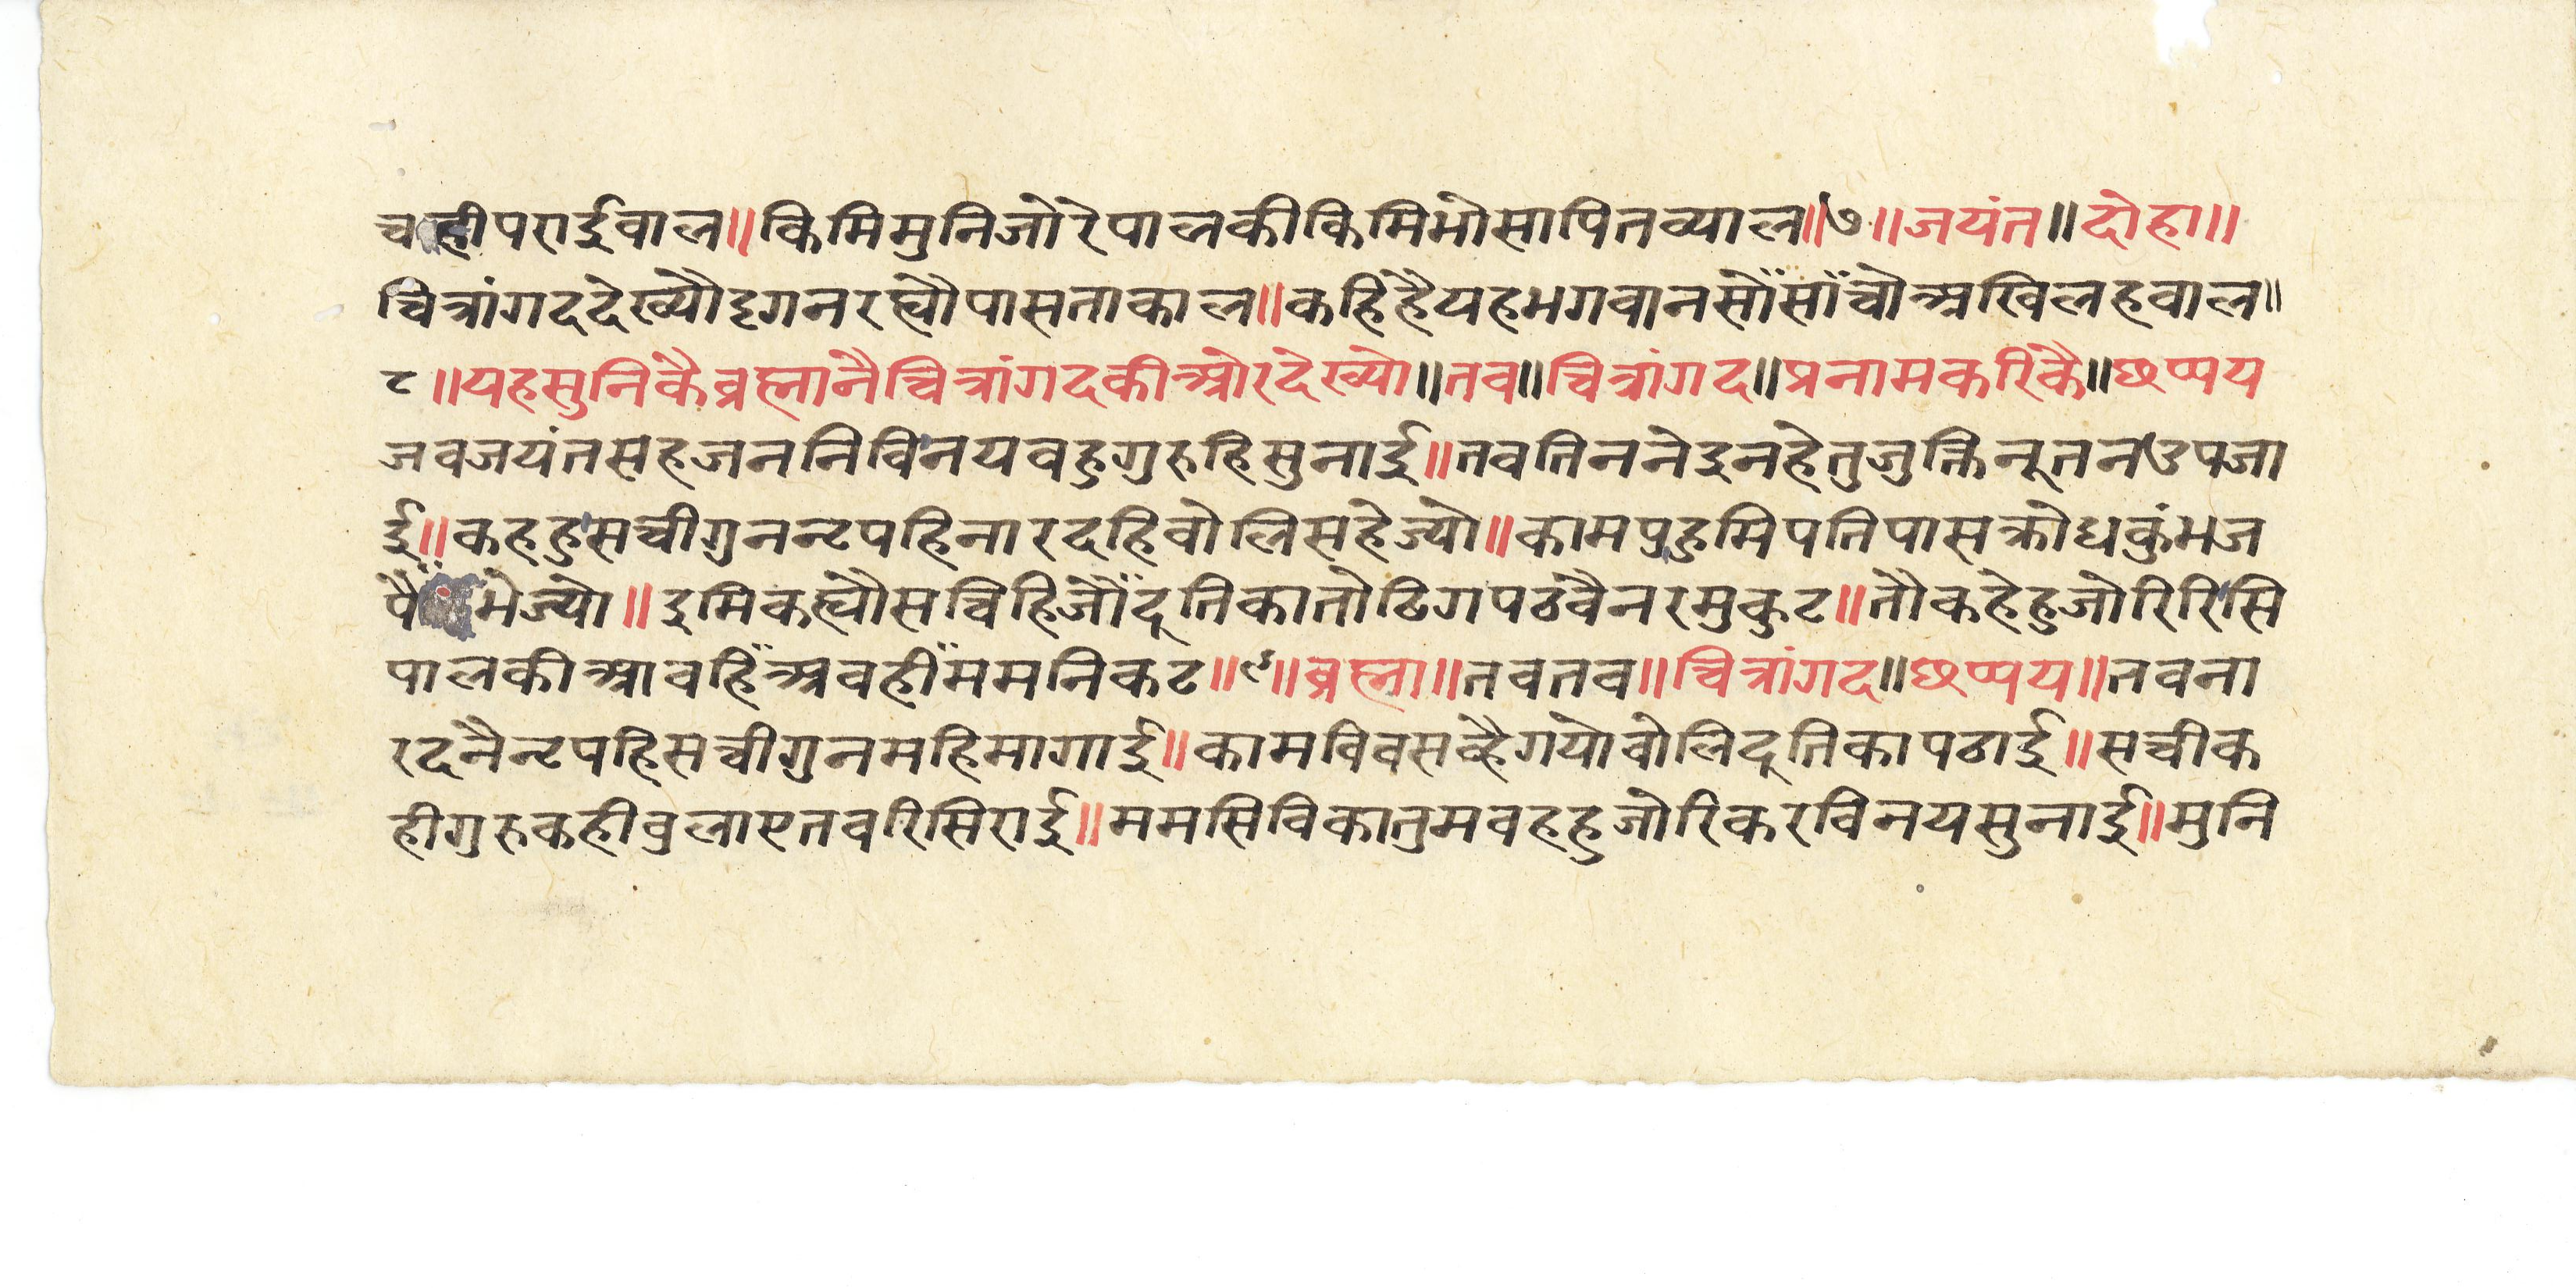 चाहीपराईवाल॥किमिमुनिजोरेपालकीकिमिभोसापितव्याल॥७॥जयंत॥दोहा॥
चित्रांगददेख्यौदृगनरह्यौपासताकाल॥कहिहैयहभगवानसौंसांचोअखिलहवाल॥
८॥यहसुनिकैब्रह्मानैचित्रांगदकीओरदेख्यो॥तव॥चित्रांगद॥प्रनामकरिकै॥छप्पय
जवजयंतसहजननिविनयवहुगुरुहिसुनाई॥तवतिननेइनहेतुजुक्तिनूतनउपजा
ई॥कहहुसचीगुननृपहिनारदहिवोलिसहेज्यो॥कामपुहुमिपतिपासक्रोधकुंभज
पैंभेज्यो॥इमिकह्यौसचिहिजौंदूतिकातोढिगपठवैनरमुकुट॥तौकहेहुजोरिरिसि
पालकीआवहिंअवहींममनिकट॥९॥ब्रह्मा॥तवतव॥चित्रांगद॥छप्पय॥तवना
रदनैनृपहिसचीगुनमहिमागाई॥कामविवसव्हैगयोवोलिदूतिकापठाई॥सचीक
हीगुरुकहीवुलाएतवरिसिराई॥ममसिविकातुमवहहुजोरिकरविनयसुनाई॥मुनि